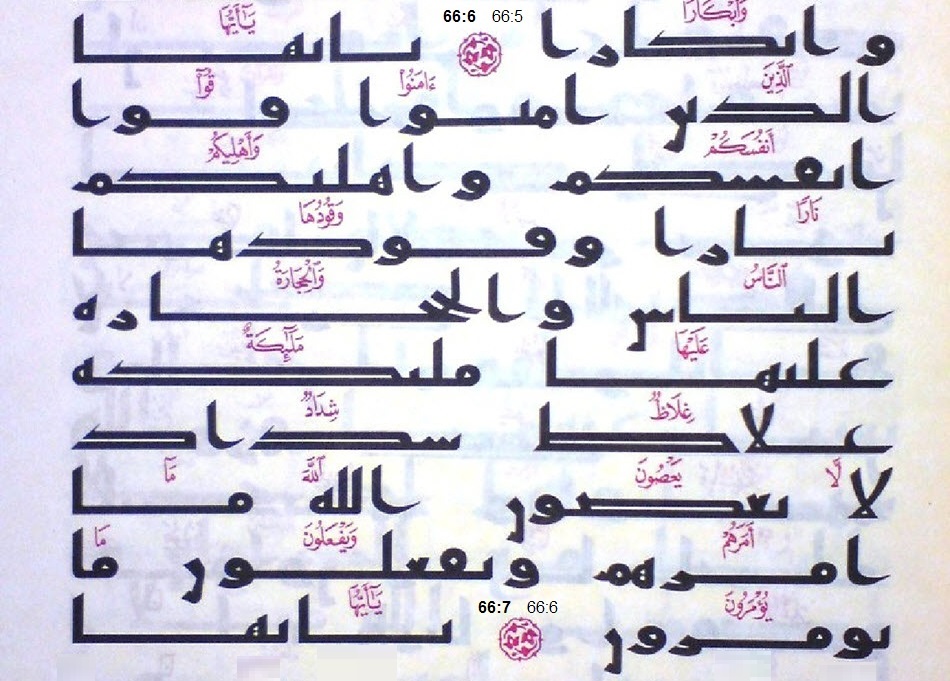 وَأَبْكَارًا 66:5 66:6 يَـٰٓأَيُّهَا
وابكارا يايها
ٱلَّذِينَ ءَامَنُوا۟ قُوٓا۟
الذين امنوا قوا
أَنفُسَكُمْ وَأَهْلِيكُمْ
انفسكم واهليكم
نَارًا وَقُودُهَا
نارا وقودها
ٱلنَّاسُ وَٱلْحِجَارَةُ
الناس والحجاره
عَلَيْهَا مَلَـٰٓئِكَةٌ
عليها مليكه
غِلَاظٌ شِدَادٌ
غلاظ شداد
لَّا يَعْصُونَ ٱللَّهَ مَآ
لا يعصون الله ما
أَمَرَهُمْ وَيَفْعَلُونَ مَا
امرهم ويفعلون ما
يُؤْمَرُونَ 66:6 66:7 يَـٰٓأَيُّهَا
يومرون يايها